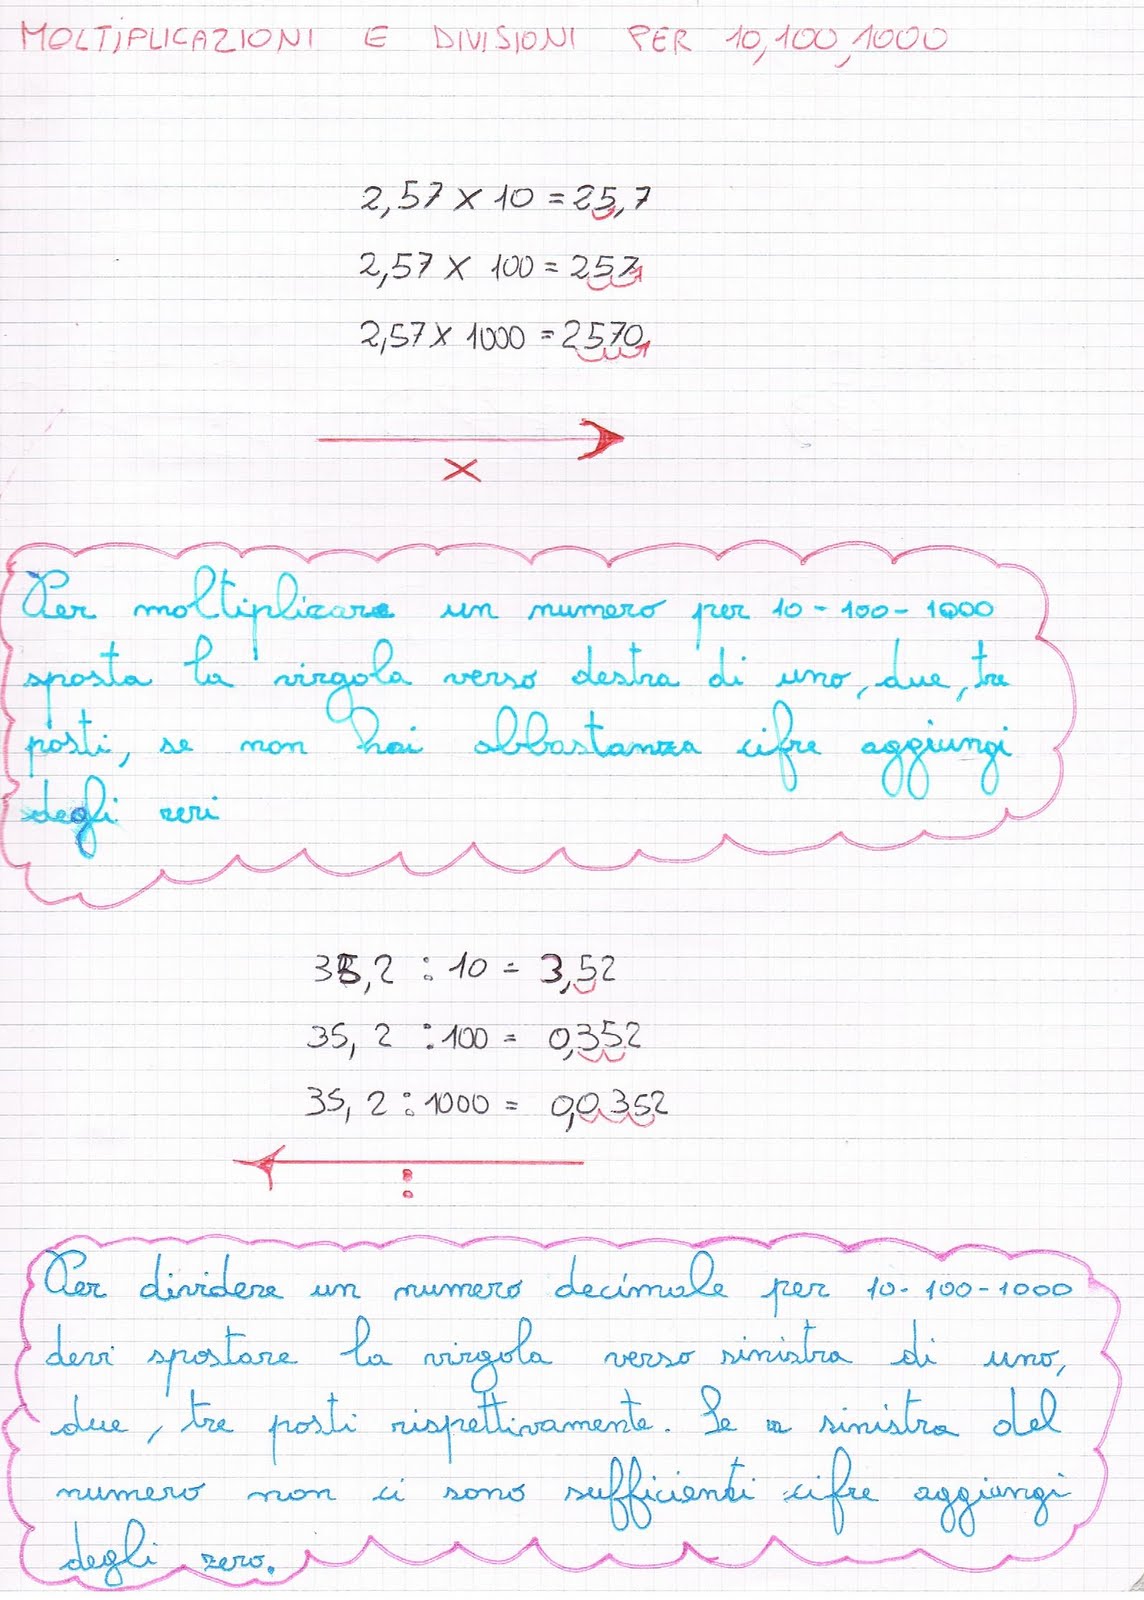 MOLTIPLICAZIONI E DIVISIONI PER 10,100,1000
2,57 X 10 = 25,7
2,57 X 100 = 257
2,57 X 1000 = 2570
X
Per moltiplicare un numero per 10-100-1000
sposta la virgola verso destra di uno, due, tre
posti, se non hai abbastanza cifre aggiungi
degli zeri
35,2 : 10 = 3,52
35,2 : 100 = 0,352
35,2 : 1000 = 0,0352
:
Per dividere un numero decimale per 10-100-1000
devi spostare la virgola verso sinistra di uno,
due, tre posti rispettivamente. Se a sinistra del
numero non ci sono sufficienti cifre aggiungi
degli zero.